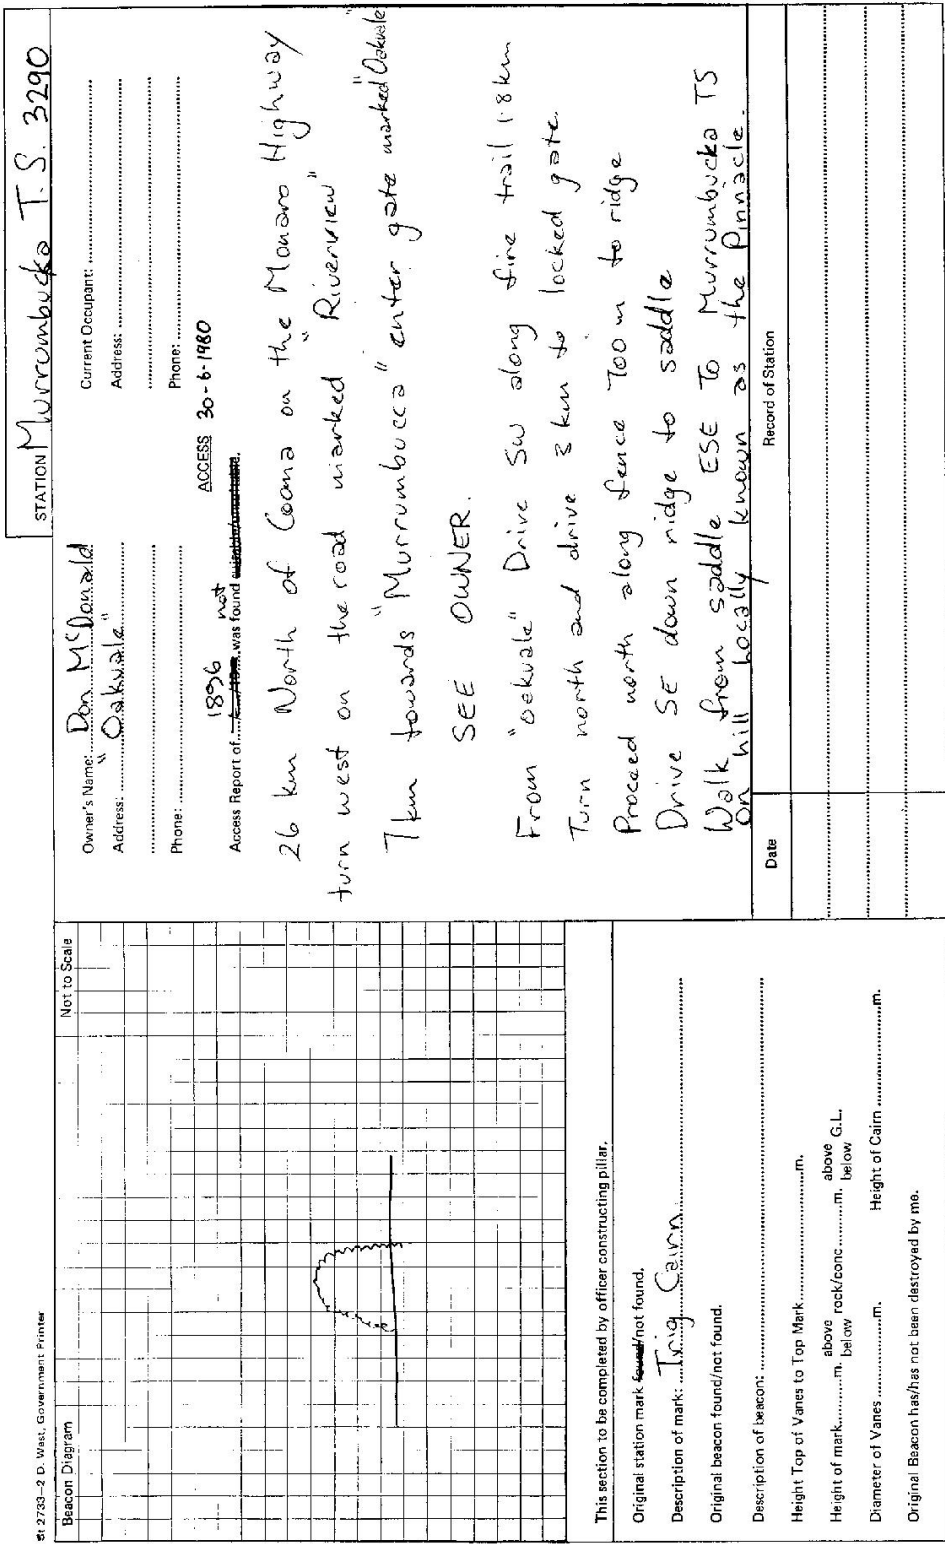 St 2733–2 D. West, Government Printer
Beacon Diagram
Not to Scale
This section to be completed by officer constructing pillar.
Original station mark found/not found.
Description of mark: Trig Cairn
Original beacon found/not found.
Description of beacon:
Height Top of Vanes to Top Mark m.
Height of mark m. above below rock/conc m. above below G.L.
Diameter of Vanes m. Height of Cairn m.
Original Beacon has/has not been destroyed by me.
STATION Murrumbucka T.S. 3290
Owner's Name: Don McDonald
Address: "Oakvale"
Phone:
Current Occupant:
Address:
Phone:
ACCESS 30-6-1980
Access Report of 1896 was not found
26 km North of Cooma on the Monaro Highway
turn west on the road marked "Riverview"
7km towards "Murrumbucca" enter gate marked "Oakvale"
SEE OWNER.
From "Oakvale" Drive SW along fire trail 1.8 km
Turn north and drive 3 km to locked gate.
Proceed north along fence 700 m to ridge
Drive SE down ridge to saddle
Walk from saddle ESE To Murrumbucka TS
on hill locally known as the Pinnacle.
Date
Record of Station